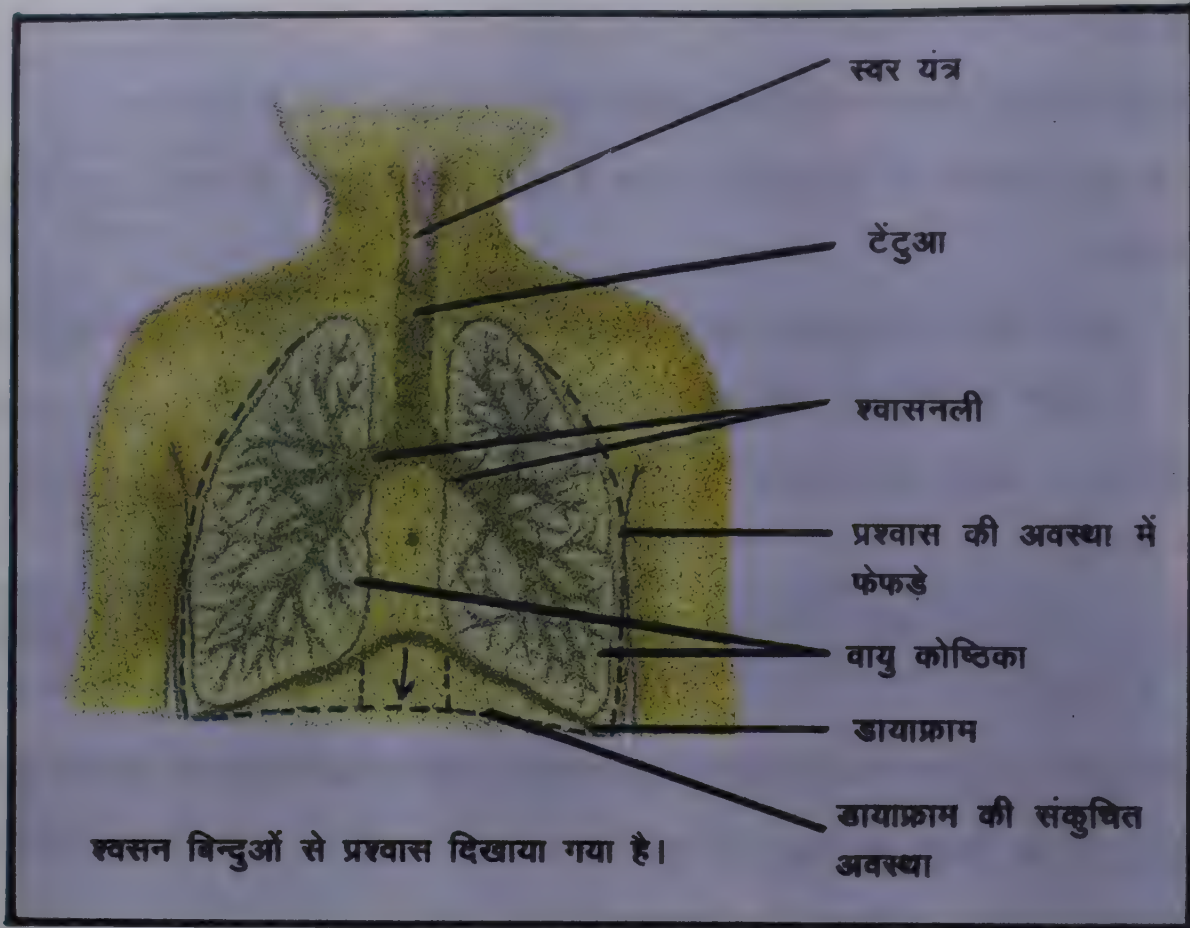 स्वर यंत्र
टेंटुआ
श्वासनली
प्रश्वास की अवस्था में
फेफड़े
वायु कोष्ठिका
डायाफ्राम
डायाफ्राम की संकुचित
अवस्था
श्वसन बिन्दुओं से प्रश्वास दिखाया गया है।